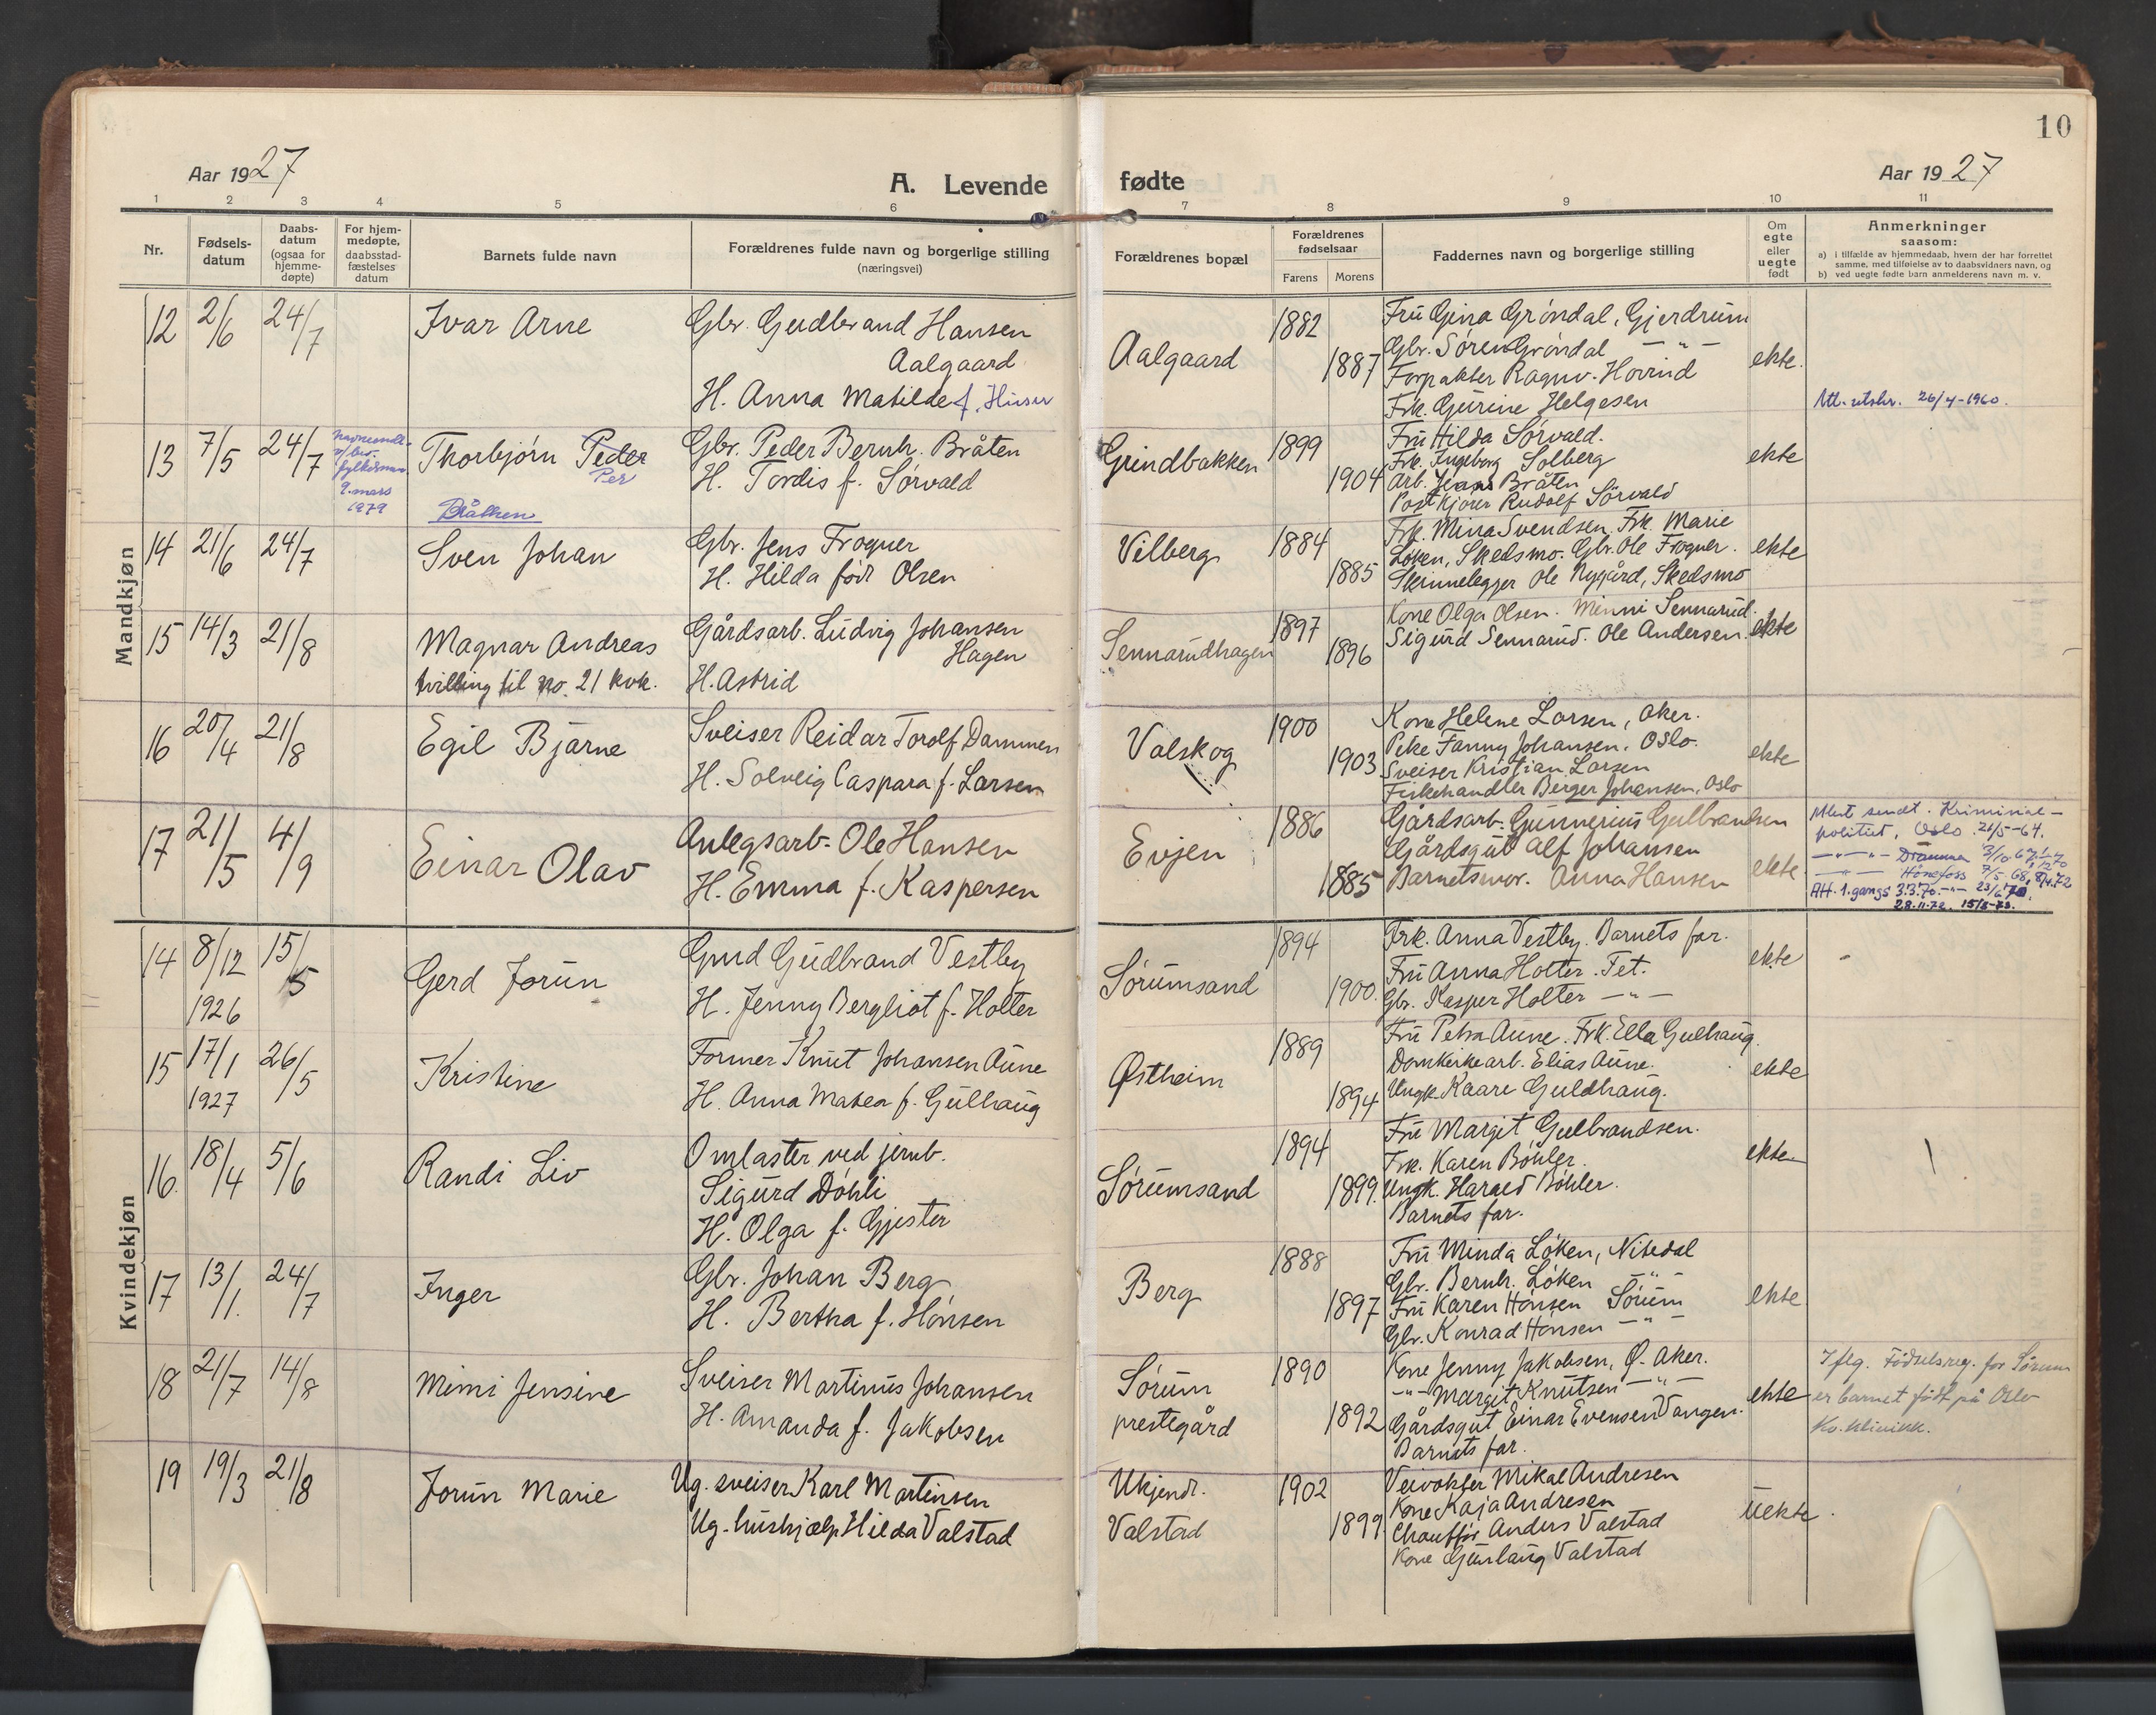 10
Aar 1927
A. Levende fødte
Aar 1927
1 2 3 4 5 6 7 8 9 10 11
Nr.
Fødsels-
datum
Daabs-
datum
(ogsaa for
hjemme-
døpte)
For hjem-
medøpte,
daabsstad-
fæstelses
datum
Barnets fulde navn
Forældrenes fulde navn og borgerlige stilling
(næringsvei)
Forældrenes bopæl
Forældrenes
fødselsaar
Farens Morens
Faddernes navn og borgerlige stilling
Om
egte
eller
uegte
født
Anmerkninger
saasom:
a) i tilfælde av hjemmedaab, hvem der har forrettet
samme, med tilføielse av to daabsvidners navn, og
b) ved uegte fødte barn anmelderens navn m. v.
Mandkjøn
12 2/6 24/7 Ivar Arne
Gbr. Gudbrand Hansen
Aalgaard
H. Anna Matilde f.
Aalgaard 1882 1887
Fru Gina Grøndal, Gjerdrum
Gbr. Søren Grøndal — " —
Forpakter Ragnv. Hovind
Frk. Gurine Helgesen
ekte.
Att. utskr. 26/4-1960.
13 7/5 24/7
fylkesman
9. mars
1979
Thorbjørn Peder
Per
Bråthen
Gbr. Peder Bernh. Bråten
H. Tordis f. Sørvald
Grindbakken 1899 1904
Fru Hilda Sørvald.
Frk. Ingeborg Solberg
Arb. Jens Bråten
Postkjører Rudolf Sørvald
ekte
14 21/6 24/7 Sven Johan
Gbr. Jens Frogner
H. Hilda født Olsen
Vilberg 1884 1885
Frk. Mina Svendsen. Frk. Marie
Løken, Skedsmo. Gbr. Ole Frogner.
Skinnelegger Ole Nygård, Skedsmo
ekte
15 14/3 21/8 Magnar Andreas
tvilling til no. 21 kvk.
Gårdsarb. Ludvig Johansen
Hagen
H. Astrid
Sennarudhagen 1897 1896
Kone Olga Olsen. Minni Sennarud.
Sigurd Sennarud. Ole Andersen.
ekte
16 20/4 21/8 Egil Bjarne
Sveiser Reidar Torolf Dammen
H. Solveig Caspara f. Larsen
Valskog 1900 1903
Kone Helene Larsen, Aker.
Pike Fanny Johansen. Oslo.
Sveiser Kristian Larsen
Fiskehandler Berger Johansen, Oslo
ekte
17 21/5 4/9 Einar Olav
Anlegsarb. Ole Hansen
H. Emma f. Kaspersen
Evjen 1886 1885
Gårdsarb. Gunnerius Gulbrandsen
Gårdsgut Alf Johansen
Barnetsmor. Anna Hansen
ekte
Attest sendt. Kriminal-
politiet, Oslo 21/5-64.
— " — Drammen 3/10 67
— " — Hønefoss 7/5 68, 8/4.72
Att. 1.gangs 3.3.70. — " — 23/6 70.
28.11.72. 15/3-73.
Kvindekjøn
14 8/12 1926 15/5 Gerd Jorun
Gmd Gudbrand Vestby
H. Jenny Bergliot f. Holter
Sørumsand 1894 1900.
Frk. Anna Vestby. Barnets far.
Fru Anna Holter. Fet.
Gbr. Kasper Holter — " —
ekte
15 17/1 1927 26/5 Kristine
Former Knut Johansen Aune
H. Anna Matea f. Gulhaug
Østheim 1889 1894
Fru Petra Aune. Frk. Ella Gulhaug.
Domkirkearb. Elias Aune.
Ungk. Kaare Guldhaug.
ekte
16. 18/4 5/6 Randi Liv
Omlaster ved jernb.
Sigurd Døhli
H. Olga f. Gjester
Sørumsand 1894 1899.
Fru Margit Gulbrandsen.
Frk. Karen Bøhler.
Ungk. Harald Bøhler.
Barnets far.
ekte
17 13/1. 24/7 Inger
Gbr. Johan Berg
H. Bertha f. Hønsen
Berg 1888 1897
Fru Minda Løken, Nitedal
Gbr. Bernh. Løken — " —
Fru Karen Hønsen Sørum
Gbr. Konrad Hønsen — " —
ekte
18 21/7 14/8 Mimi Jensine
Sveiser Martinus Johansen
H. Amanda f. Jakobsen
Sørum
prestegård 1890 1892
Kone Jenny Jakobsen, Ø. Aker.
— " — Margit Knutsen — " —
Gårdsgut Einar Evensen Vangen.
Barnets far.
ekte
Iflg. Fødselsreg. for Sørum
er barnet født på Oslo
Kv.klinikk.
19 19/3 21/8 Jorun Marie
Ug. sveiser Karl Martinsen
Ug. hushjælp Hilda Valstad
Ukjendt.
Valstad 1902 1899
Veivokter Mikal Andresen
Kone Kaja Andresen
Chauffør Anders Valstad
Kone Gunlaug Valstad
Uekte.